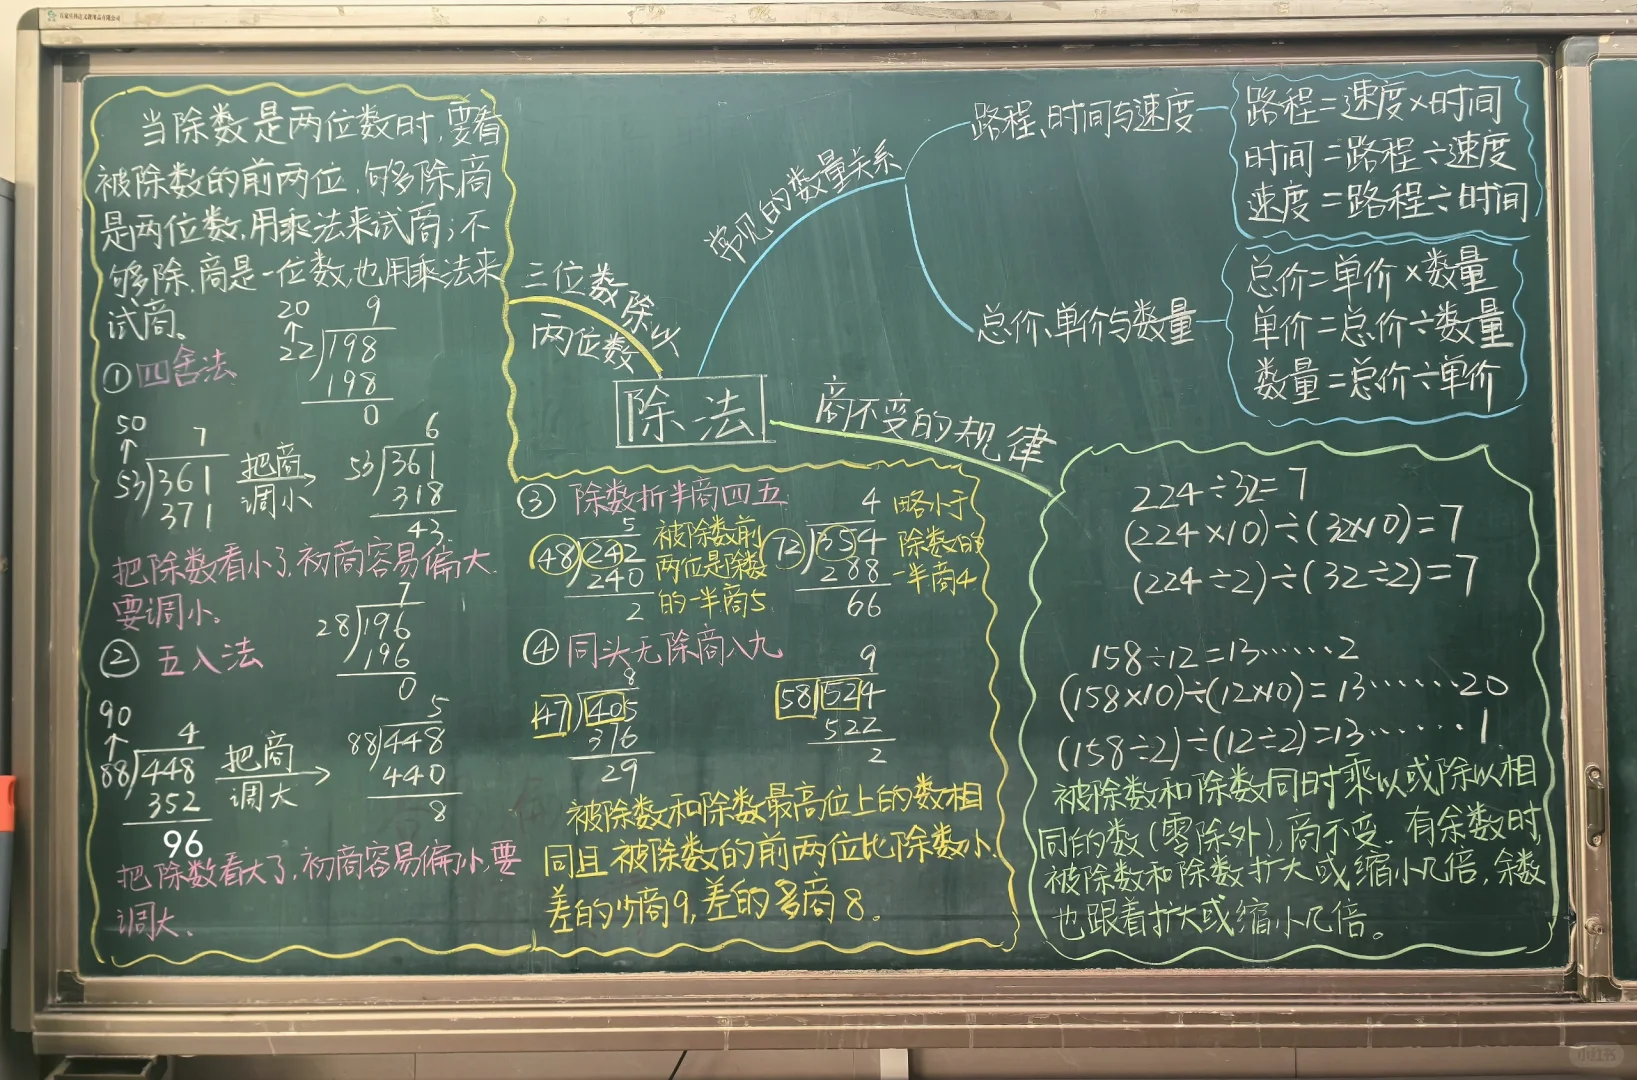 当除数是两位数时,要看
被除数的前两位,够多除,商
是两位数,用乘法来试商;不
够多除,商是一位数,也用乘法来
试商。
①四舍法
20
↑
9
22)198
198
0
50
↑
7
53)361
371
把商
调小
6
53)361
318
43
把除数看小了,初商容易偏大,
要调小。
②五入法
7
28)196
196
0
90
↑
4
88)448
352
96
把商
调大
5
88)448
440
8
把除数看大了,初商容易偏小,要
调大。
三位数除以
两位数
除法
常见的数量关系
路程、时间与速度
路程=速度×时间
时间=路程÷速度
速度=路程÷时间
总价、单价与数量
总价=单价×数量
单价=总价÷数量
数量=总价÷单价
商不变的规律
③除数折半商四五
5
48)242
240
2
被除数前
两位是除数
的一半商5
4
72)354
288
66
略小于
除数的
一半商4
④同头无除商八九
8
47)405
376
29
9
58)524
522
2
被除数和除数最高位上的数相
同且被除数的前两位比除数小,
差的少商9,差的多商8。
224÷32=7
(224×10)÷(32×10)=7
(224÷2)÷(32÷2)=7
158÷12=13……2
(158×10)÷(12×10)=13……20
(158÷2)÷(12÷2)=13……1
被除数和除数同时乘以或除以相
同的数(零除外),商不变.有余数时,
被除数和除数扩大或缩小几倍,余数
也跟着扩大或缩小几倍。
小红书